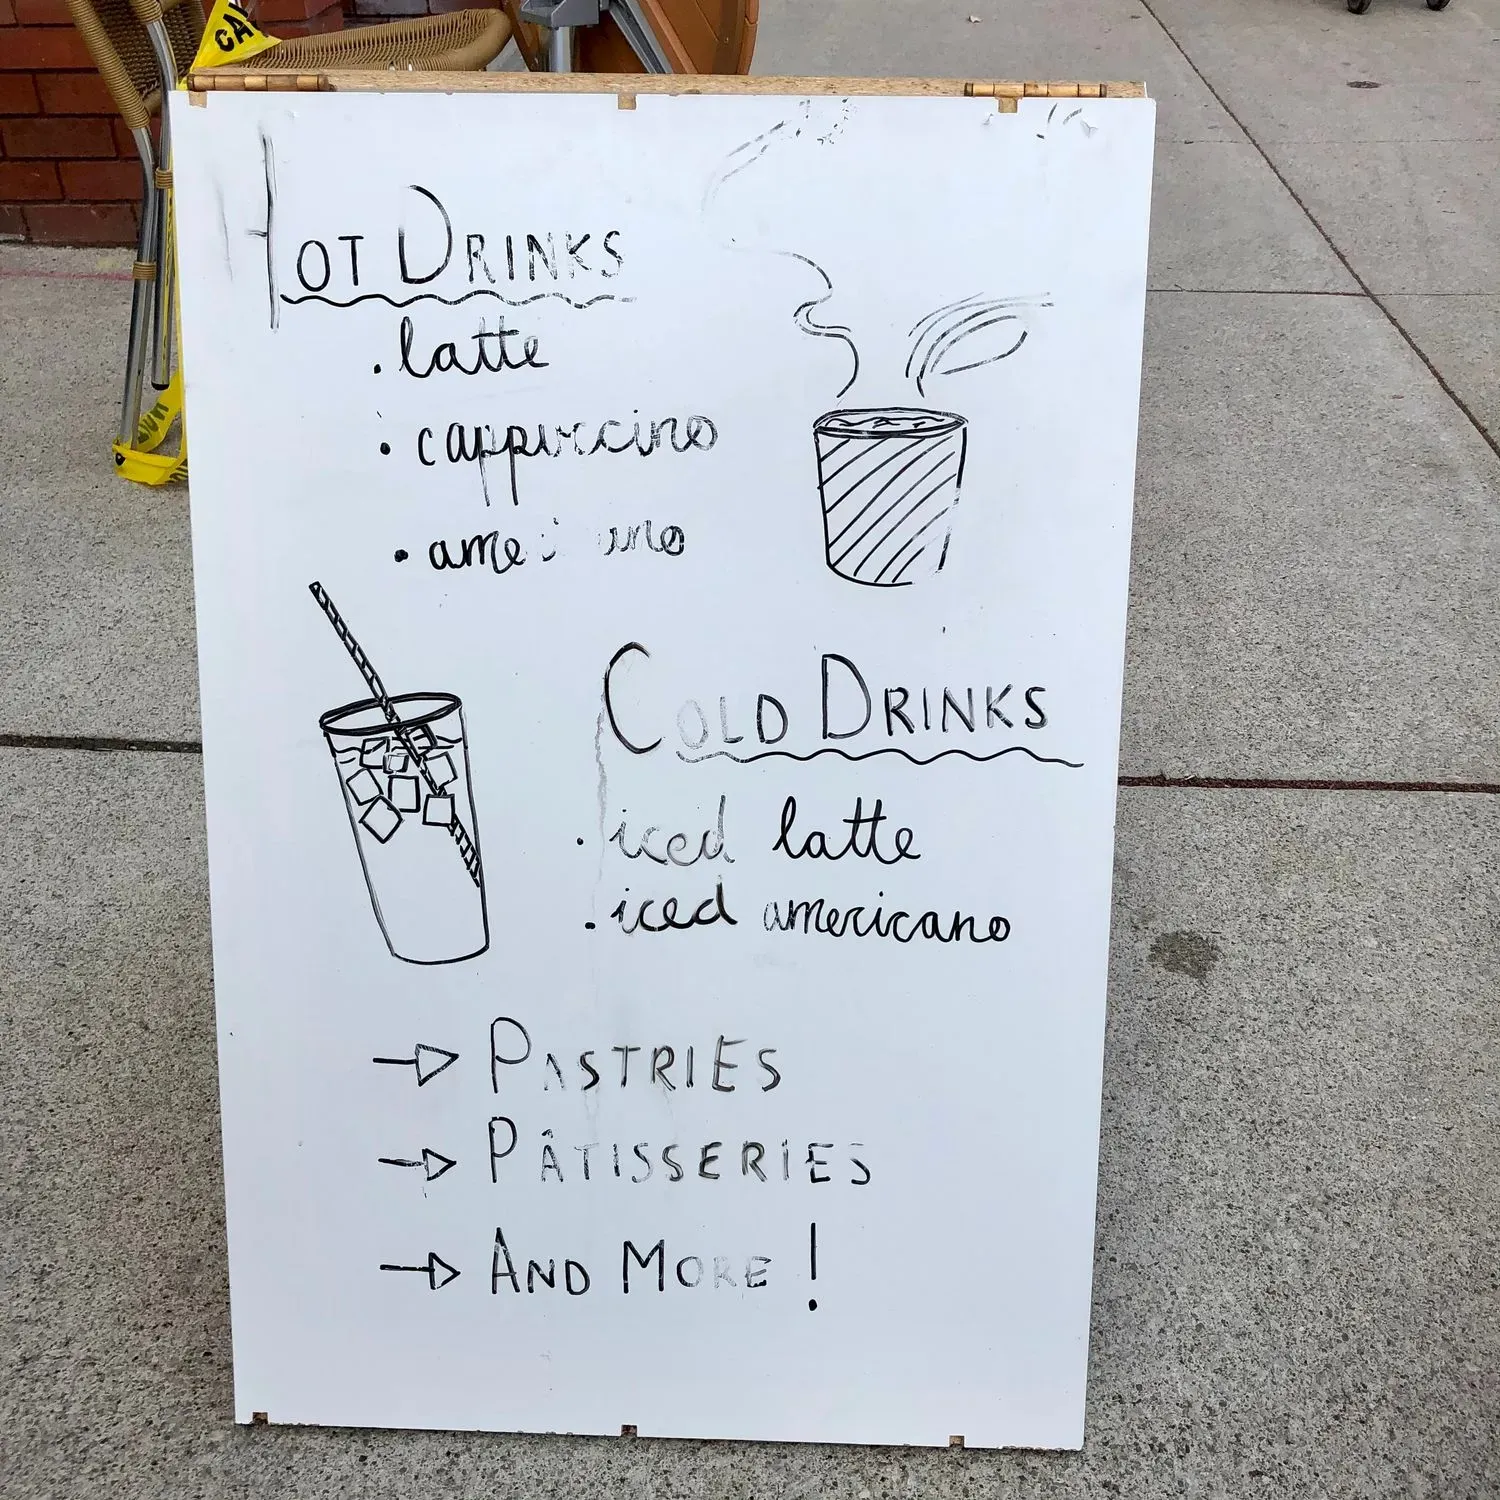 CA
HOT DRINKS
. latte
. cappuccino
. americano
COLD DRINKS
. iced latte
. iced americano
→ PASTRIES
→ PÂTISSERIES
→ AND MORE !